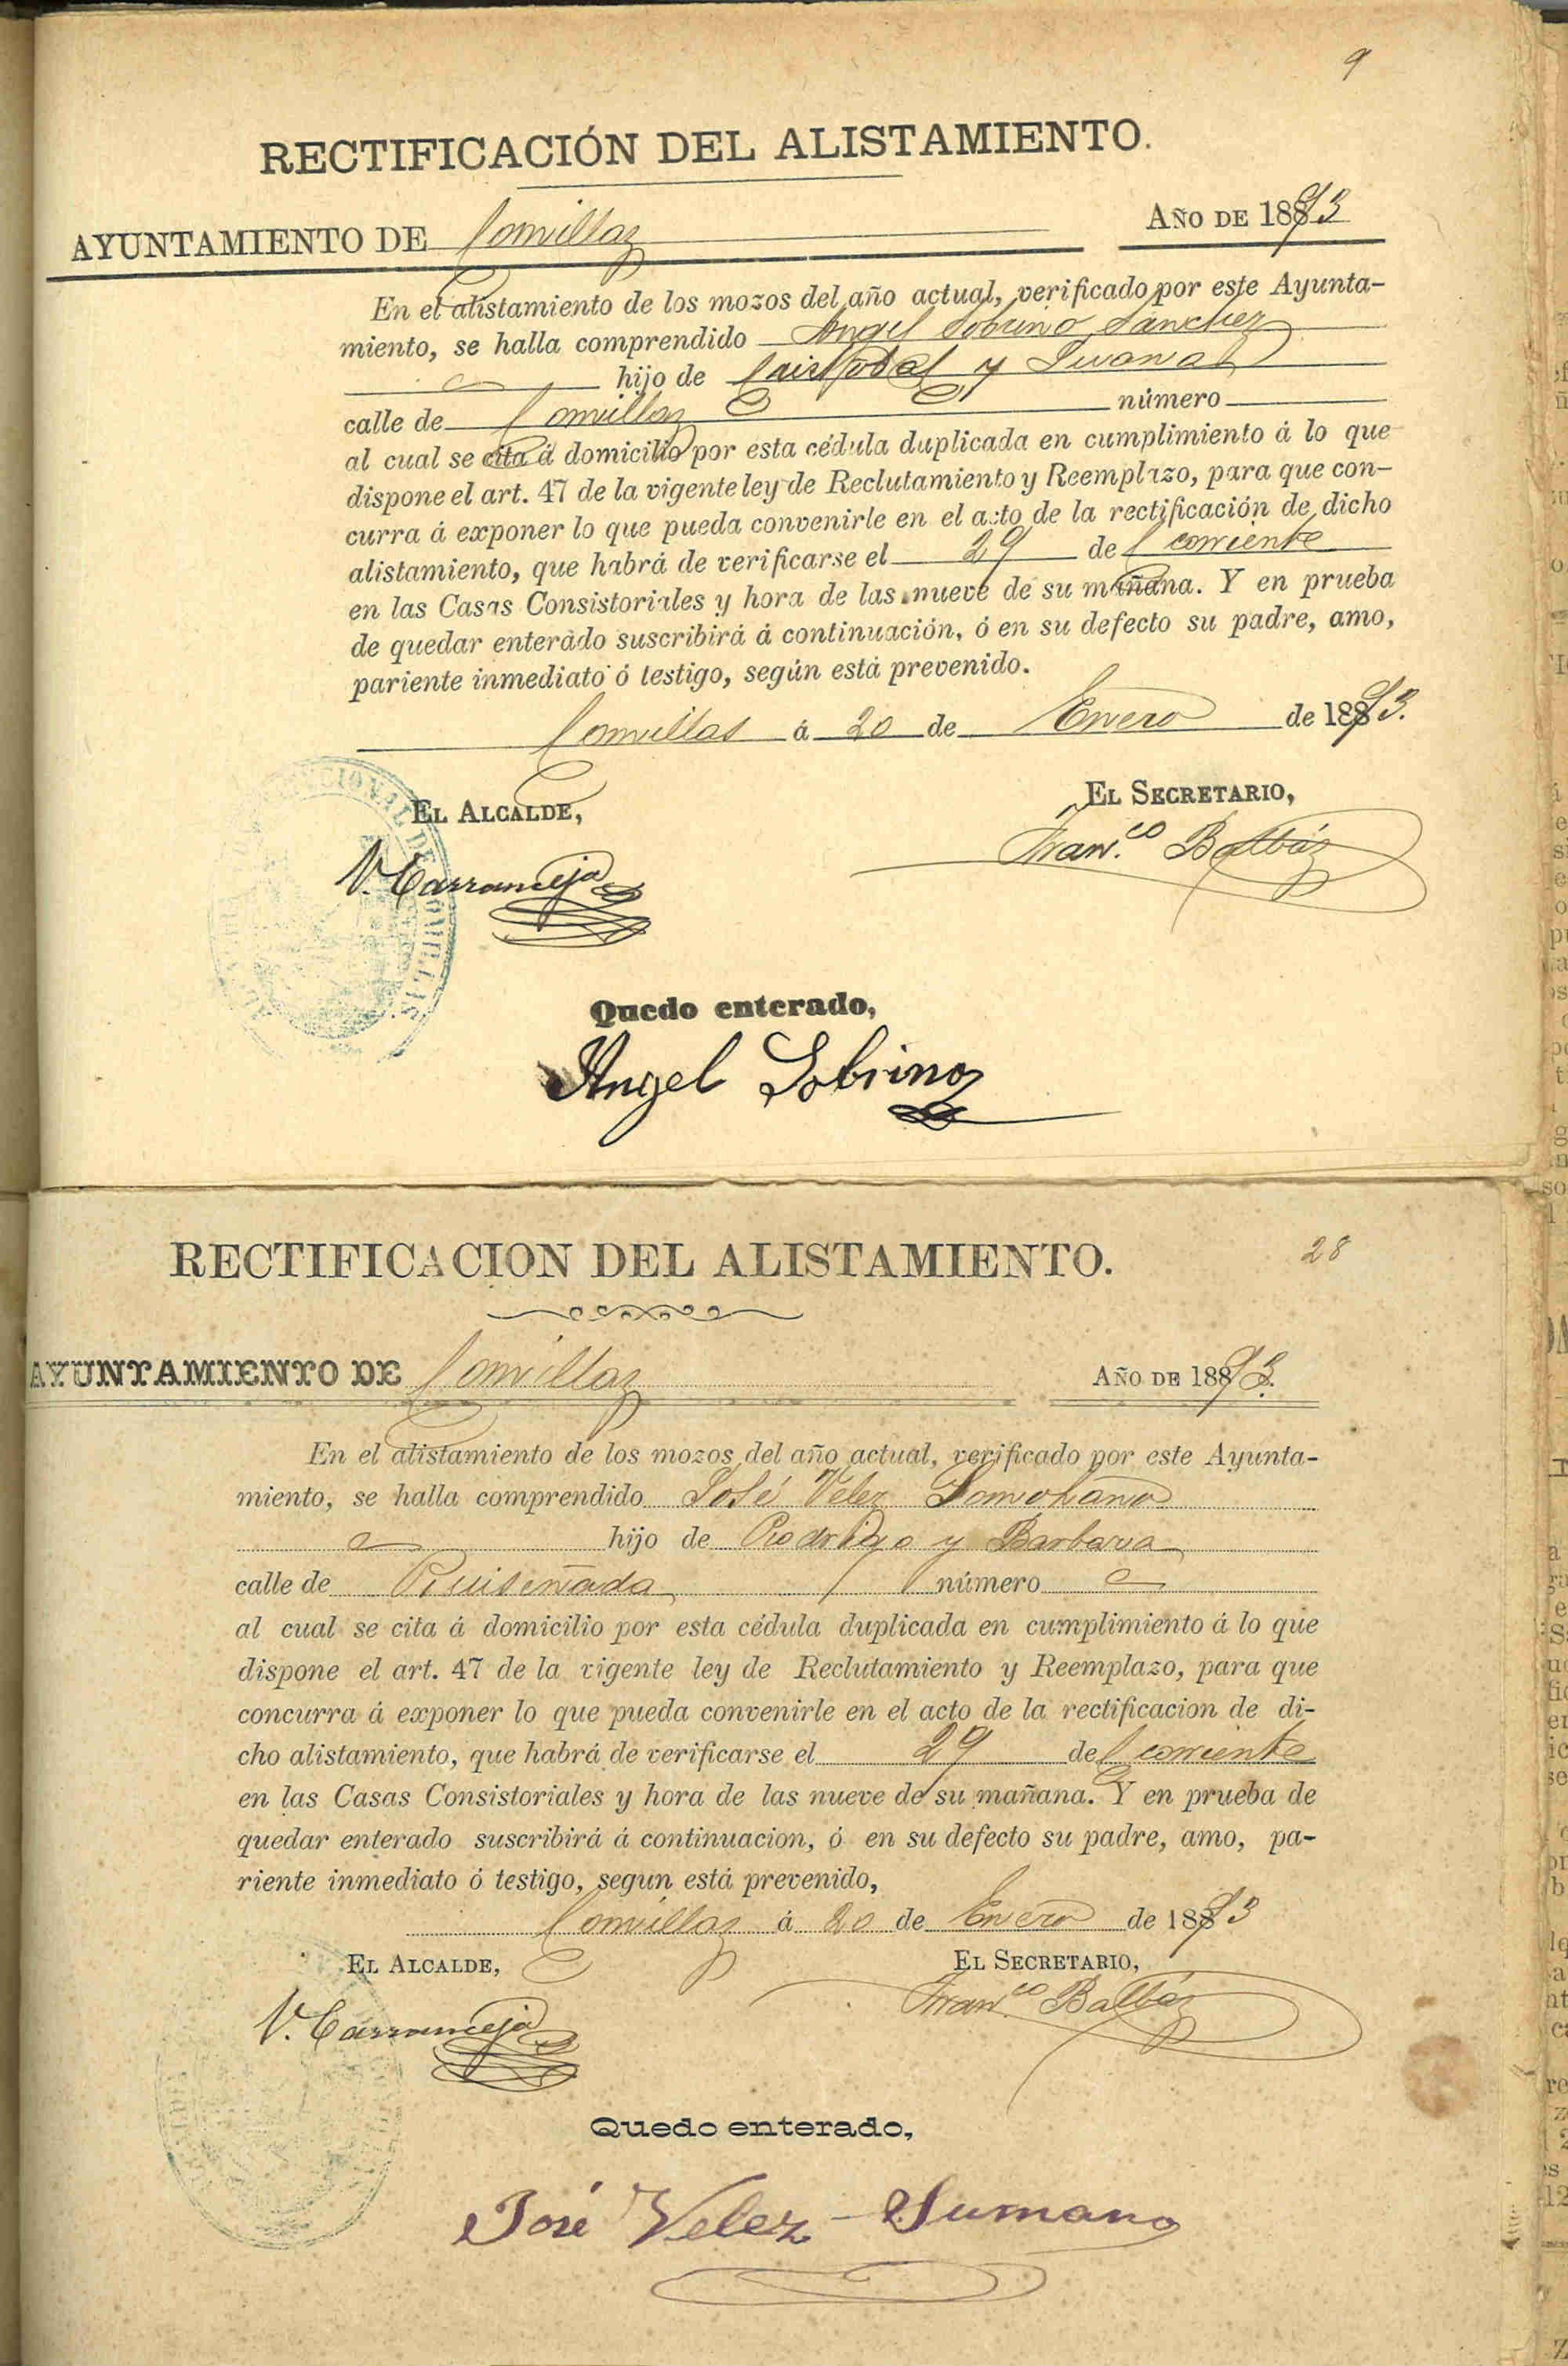 9
RECTIFICACIÓN DEL ALISTAMIENTO.
AYUNTAMIENTO DE Comillas AÑO DE 1893
En el alistamiento de los mozos del año actual, verificado por este Ayunta-
miento, se halla comprendido Angel Sobrino Sanchez
hijo de Cristobal y Juana
calle de Comillas número
al cual se cita á domicilio por esta cédula duplicada en cumplimiento á lo que
dispone el art. 47 de la vigente ley de Reclutamiento y Reemplazo, para que con-
curra á exponer lo que pueda convenirle en el acto de la rectificación de dicho
alistamiento, que habrá de verificarse el 29 del corriente
en las Casas Consistoriales y hora de las nueve de su mañana. Y en prueba
de quedar enterado suscribirá á continuación, ó en su defecto su padre, amo,
pariente inmediato ó testigo, según está prevenido.
Comillas á 20 de Enero de 1893.
EL ALCALDE, EL SECRETARIO,
V. Carranceja Fran.co Balbás
Quedo enterado,
Angel Sobrino
RECTIFICACION DEL ALISTAMIENTO. 28
AYUNTAMIENTO DE Comillas AÑO DE 1893.
En el alistamiento de los mozos del año actual, verificado por este Ayunta-
miento, se halla comprendido José Velez Somohano
hijo de Rodrigo y Barbara
calle de Ruiseñada número
al cual se cita á domicilio por esta cédula duplicada en cumplimiento á lo que
dispone el art. 47 de la vigente ley de Reclutamiento y Reemplazo, para que
concurra á exponer lo que pueda convenirle en el acto de la rectificacion de di-
cho alistamiento, que habrá de verificarse el 29 del corriente
en las Casas Consistoriales y hora de las nueve de su mañana. Y en prueba de
quedar enterado suscribirá á continuacion, ó en su defecto su padre, amo, pa-
riente inmediato ó testigo, segun está prevenido,
Comillas á 20 de Enero de 1893
EL ALCALDE, EL SECRETARIO,
V. Carranceja Fran.co Balbás
Quedo enterado,
José Velez Sumano